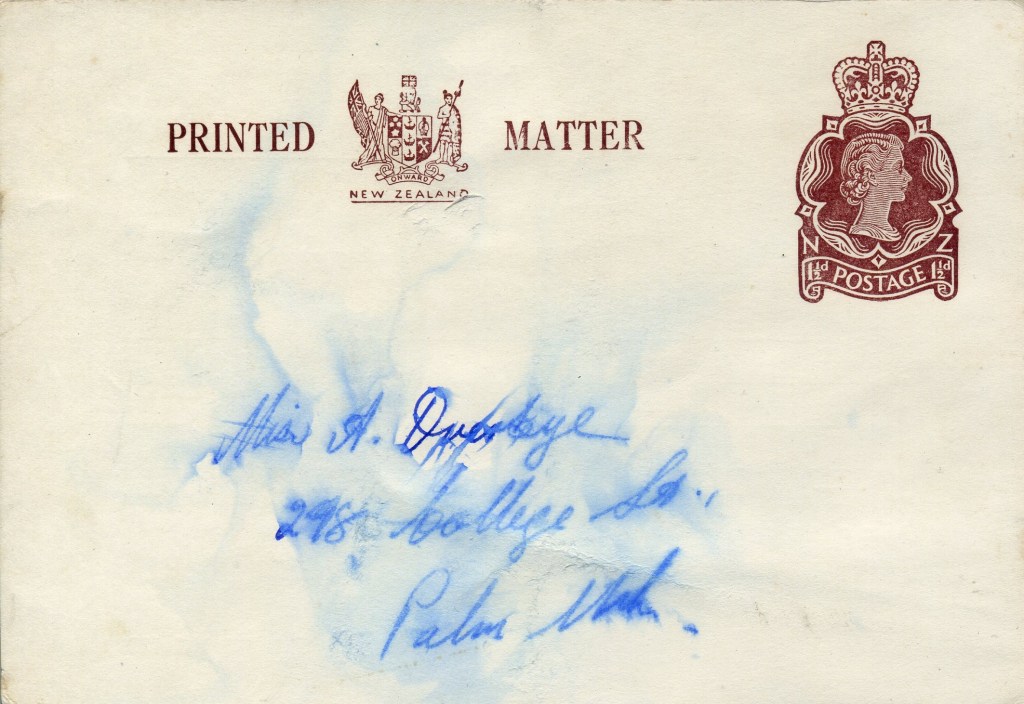 PRINTED MATTER
ONWARD
NEW ZEALAND
N Z
1½d POSTAGE 1½d
Miss A.
298 College St.,
Palm Nth.